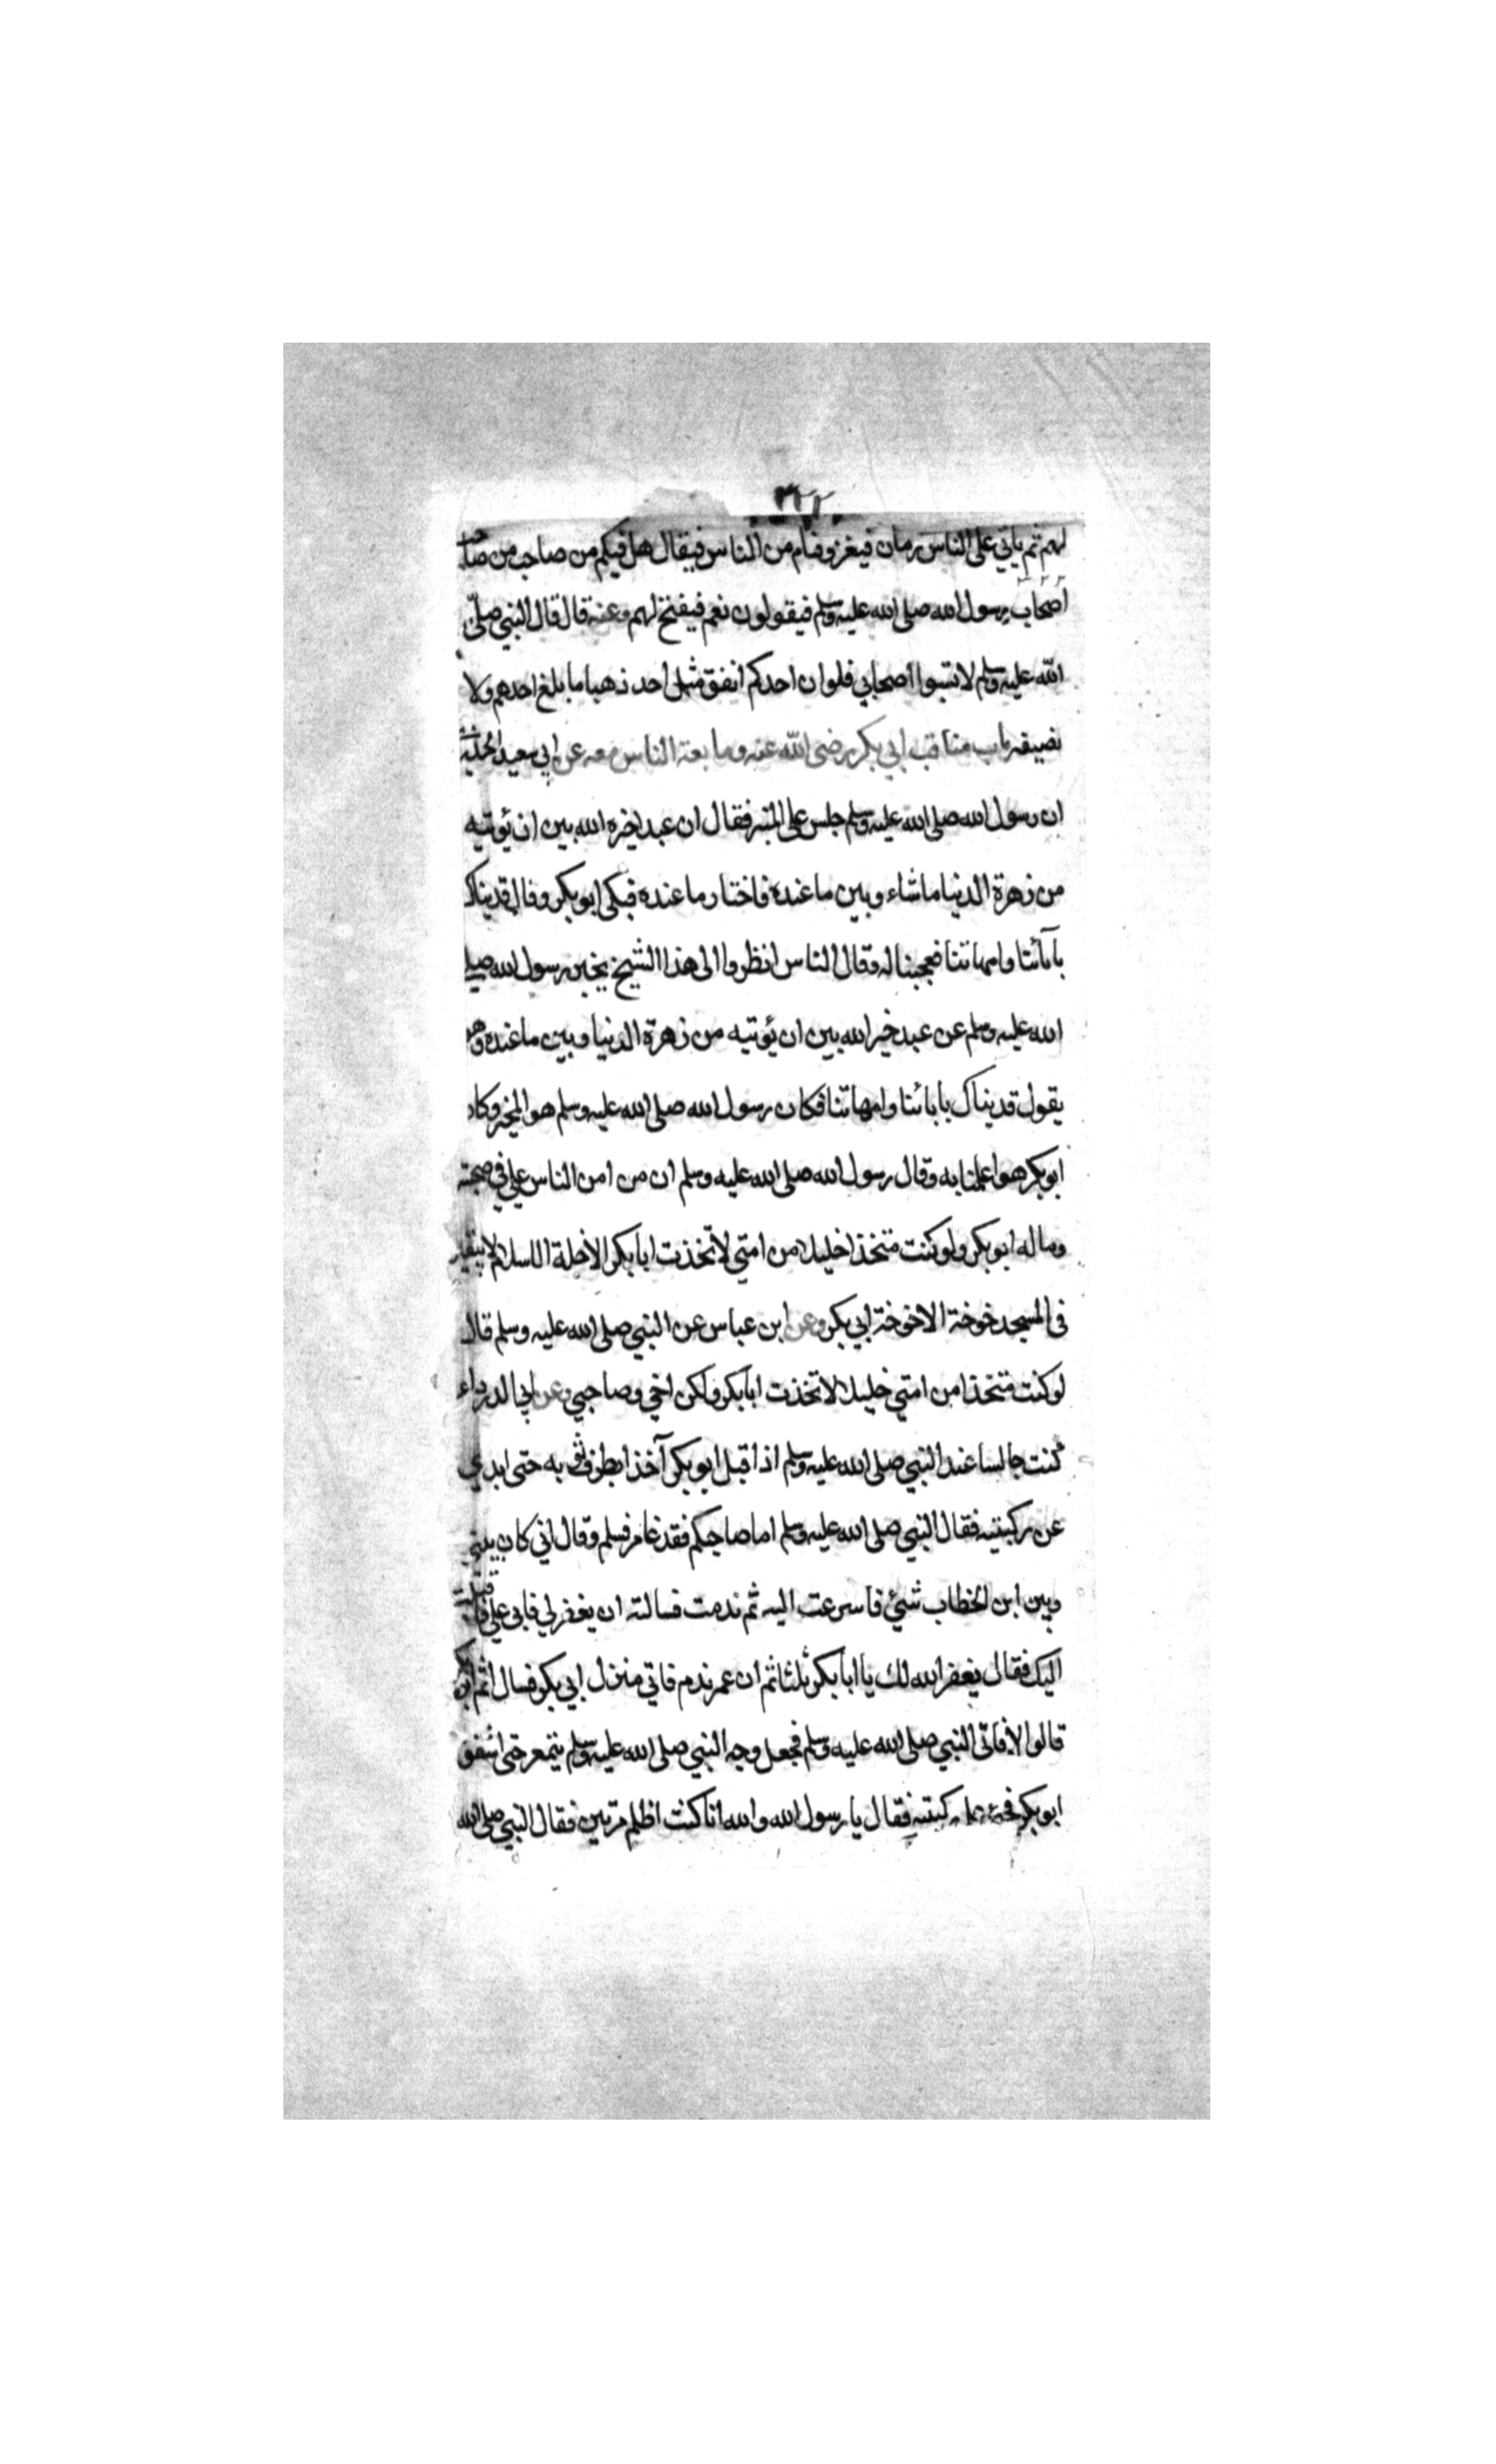 ٣٢٢
لهم ثم ياتي على الناس زمان فيغزو فئام من الناس فيقال هل فيكم من صاحب من صاحب
اصحاب رسول الله صلى الله عليه وسلم فيقولون نعم فيفتح لهم وعنه قال قال النبي صلى
الله عليه وسلم لا تسبوا اصحابي فلو ان احدكم انفق مثل احد ذهبا ما بلغ احدهم ولا
نصيفه باب مناقب ابي بكر رضى الله عنه وما بعة الناس معه عن ابي سعيد
ان رسول الله صلى الله عليه وسلم جلس على المنبر فقال ان عبدا خيره الله بين ان يؤتيه
من زهرة الدنيا ما شاء وبين ما عنده فاختار ما عنده فبكى ابو بكر وقال فديناك
بآبائنا وامهاتنا فعجبنا له وقال الناس انظروا الى هذا الشيخ يخبر رسول الله صلى
الله عليه وسلم عن عبد خيره الله بين ان يؤتيه من زهرة الدنيا وبين ما عنده وهو
يقول فديناك بابائنا وامهاتنا فكان رسول الله صلى الله عليه وسلم هو المخير وكان
ابو بكر هو اعلمنا به وقال رسول الله صلى الله عليه وسلم ان من امن الناس علي في صحبته
وماله ابو بكر ولو كنت متخذا خليلا من امتي لاتخذت ابا بكر الا خلة الاسلام لا يبقين
في المسجد خوخة الا خوخة ابي بكر وعن ابن عباس عن النبي صلى الله عليه وسلم قال
لو كنت متخذا من امتي خليلا لاتخذت ابا بكر ولكن اخي وصاحبي وعن ابي الدرداء
كنت جالسا عند النبي صلى الله عليه وسلم اذ اقبل ابو بكر آخذا بطرف ثوبه حتى ابدي
عن ركبتيه فقال النبي صلى الله عليه وسلم اما صاحبكم فقد غامر فسلم وقال اني كان بيني
وبين ابن الخطاب شيئ فاسرعت اليه ثم ندمت فسالته ان يغفر لي فابى علي فاقبلت
اليك فقال يغفر الله لك يا ابا بكر ثلثا ثم ان عمر ندم فاتى منزل ابي بكر فسال اثم ابو بكر
قالوا لا فاتى النبي صلى الله عليه وسلم فجعل وجه النبي صلى الله عليه وسلم يتمعر حتى اشفق
ابو بكر فجثى على ركبتيه فقال يا رسول الله والله انا كنت اظلم مرتين فقال النبي صلى الله